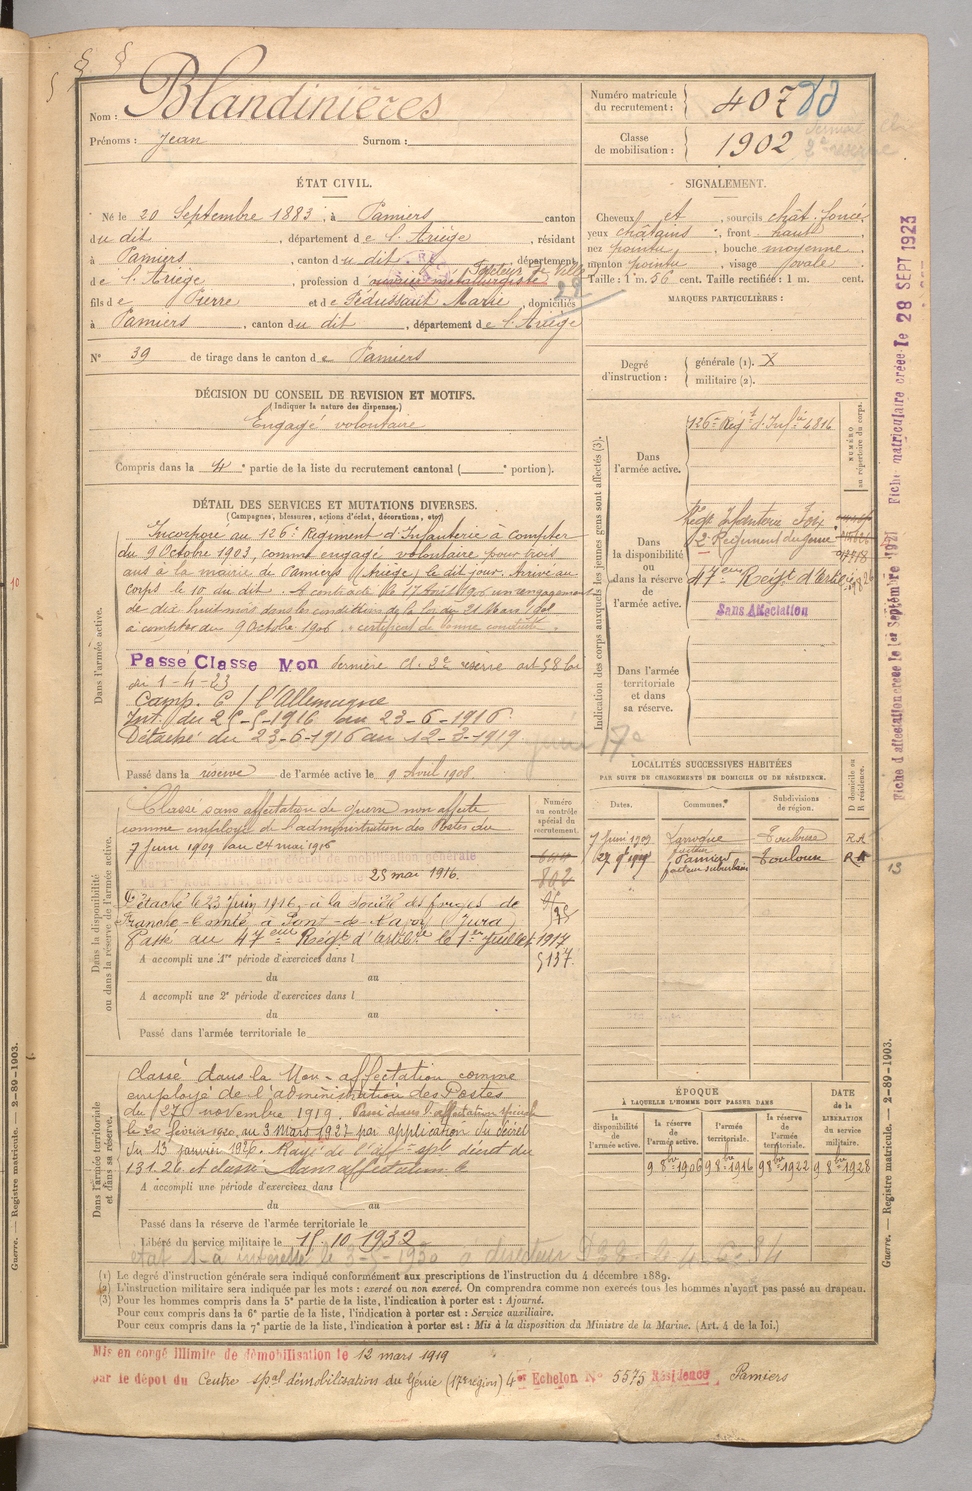 Nom : Blandinières
Prénoms : Jean Surnom :
Numéro matricule du recrutement : 407
Classe de mobilisation : 1902
ÉTAT CIVIL.
Né le 20 Septembre 1883, à Pamiers canton
du dit, département de l'Ariège, résidant
à Pamiers, canton du dit, département
de l'Ariège, profession d'ouvrier métallurgiste Facteur de ville
fils de Pierre et de Sédussaut Marie, domiciliés
à Pamiers, canton du dit, département de l'Ariège
N° 39 de tirage dans le canton de Pamiers
SIGNALEMENT.
Cheveux et, sourcils chât. foncé,
yeux châtains, front haut,
nez pointu, bouche moyenne,
menton pointu, visage ovale.
Taille : 1 m. 56 cent. Taille rectifiée : 1 m. cent.
MARQUES PARTICULIÈRES :
Degré d'instruction :
générale (1). X
militaire (2).
DÉCISION DU CONSEIL DE REVISION ET MOTIFS.
(Indiquer la nature des dispenses.)
Engagé volontaire
Compris dans la 4e partie de la liste du recrutement cantonal ( e portion).
DÉTAIL DES SERVICES ET MUTATIONS DIVERSES.
(Campagnes, blessures, actions d'éclat, décorations, etc.)
Dans l'armée active.
Incorporé au 126e Régiment d'Infanterie à compter
du 9 Octobre 1903, comme engagé volontaire pour trois
ans à la mairie de Pamiers (Ariège) le dit jour. Arrivé au
corps le 10 du dit. A contracté le 17 Avril 1906 un rengagement
de dix huit mois dans les conditions de la loi du 21 Mars 1905
à compter du 9 Octobre 1906. "certificat de bonne conduite".
Passé Classe Mon dernière cl. 2e réserve art 58 loi
du 1-4-23
Camp. C/ l'Allemagne
Int. du 25-5-1916 au 23-6-1916.
Détaché du 23-6-1916 au 12-3-1919
Passé dans la réserve de l'armée active le 9 Avril 1908.
Indication des corps auxquels les jeunes gens sont affectés (3).
NUMÉRO au répertoire du corps.
Dans l'armée active.
126e Régt d'Infie 4816
Dans la disponibilité ou dans la réserve de l'armée active.
Régt Infanterie Foix
2e Régiment du génie
47eme Reigt d'Artie
Sans Affectation
Dans l'armée territoriale et dans sa réserve.
Dans la disponibilité ou dans la réserve de l'armée active.
Classé sans affectation de guerre non affecté
comme employé de l'administration des Postes du
7 juin 1909 au 24 mai 1916
25 mai 1916.
Détaché le 23 juin 1916, à la Société des forges de
Franche-Comté à Pont-de-Navoy (Jura)
Passé au 47eme Régt d'Artillie le 1er Juillet 1917
A accompli une 1re période d'exercices dans l
du au
A accompli une 2e période d'exercices dans l
du au
Passé dans l'armée territoriale le
Numéro au contrôle spécial du recrutement.
802
5137
LOCALITÉS SUCCESSIVES HABITÉES
PAR SUITE DE CHANGEMENTS DE DOMICILE OU DE RÉSIDENCE.
Dates. Communes. Subdivisions de région. D domicile ou R résidence.
7 Juin 1909 Laroque Toulouse RA
facteur
27 9bre 1909 Pamiers Toulouse RA
facteur suburbain
Dans l'armée territoriale et dans sa réserve.
Classé dans la Non-affectation comme
employé de l'administration des Postes
du 27 novembre 1919. Passé dans l'affectation spéciale
le 20 février 1920, au 3 mars 1927 par application du décret
du 13 janvier 1926. Rayé de l'aff. sple décret du
13.1.26 et classé sans affectation le
A accompli une période d'exercices dans l
du au
Passé dans la réserve de l'armée territoriale le
Libéré du service militaire le 15.10.1932
ÉPOQUE
À LAQUELLE L'HOMME DOIT PASSER DANS
DATE de la LIBÉRATION du service militaire.
la disponibilité de l'armée active.
la réserve de l'armée active.
l'armée territoriale.
la réserve de l'armée territoriale.
9 8bre 1906 9 8bre 1916 9 8bre 1922 9 8bre 1928
(1) Le degré d'instruction générale sera indiqué conformément aux prescriptions de l'instruction du 4 décembre 1889.
(2) L'instruction militaire sera indiquée par les mots : exercé ou non exercé. On comprendra comme non exercés tous les hommes n'ayant pas passé au drapeau.
(3) Pour les hommes compris dans la 5e partie de la liste, l'indication à porter est : Ajourné.
Pour ceux compris dans la 6e partie de la liste, l'indication à porter est : Service auxiliaire.
Pour ceux compris dans la 7e partie de la liste, l'indication à porter est : Mis à la disposition du Ministre de la Marine. (Art. 4 de la loi.)
Mis en congé illimité de démobilisation le 12 mars 1919
par le dépôt du Centre spal démobilisation du Génie (17e région) 4e Echelon N° 5575 Résidence Pamiers
Fiche d'affectation créée le 1er Septembre 1921 Fiche matriculaire créée le 28 SEPT 1923
Guerre. — Registre matricule. — 2-89-1903.
Guerre. — Registre matricule. — 2-89-1903.